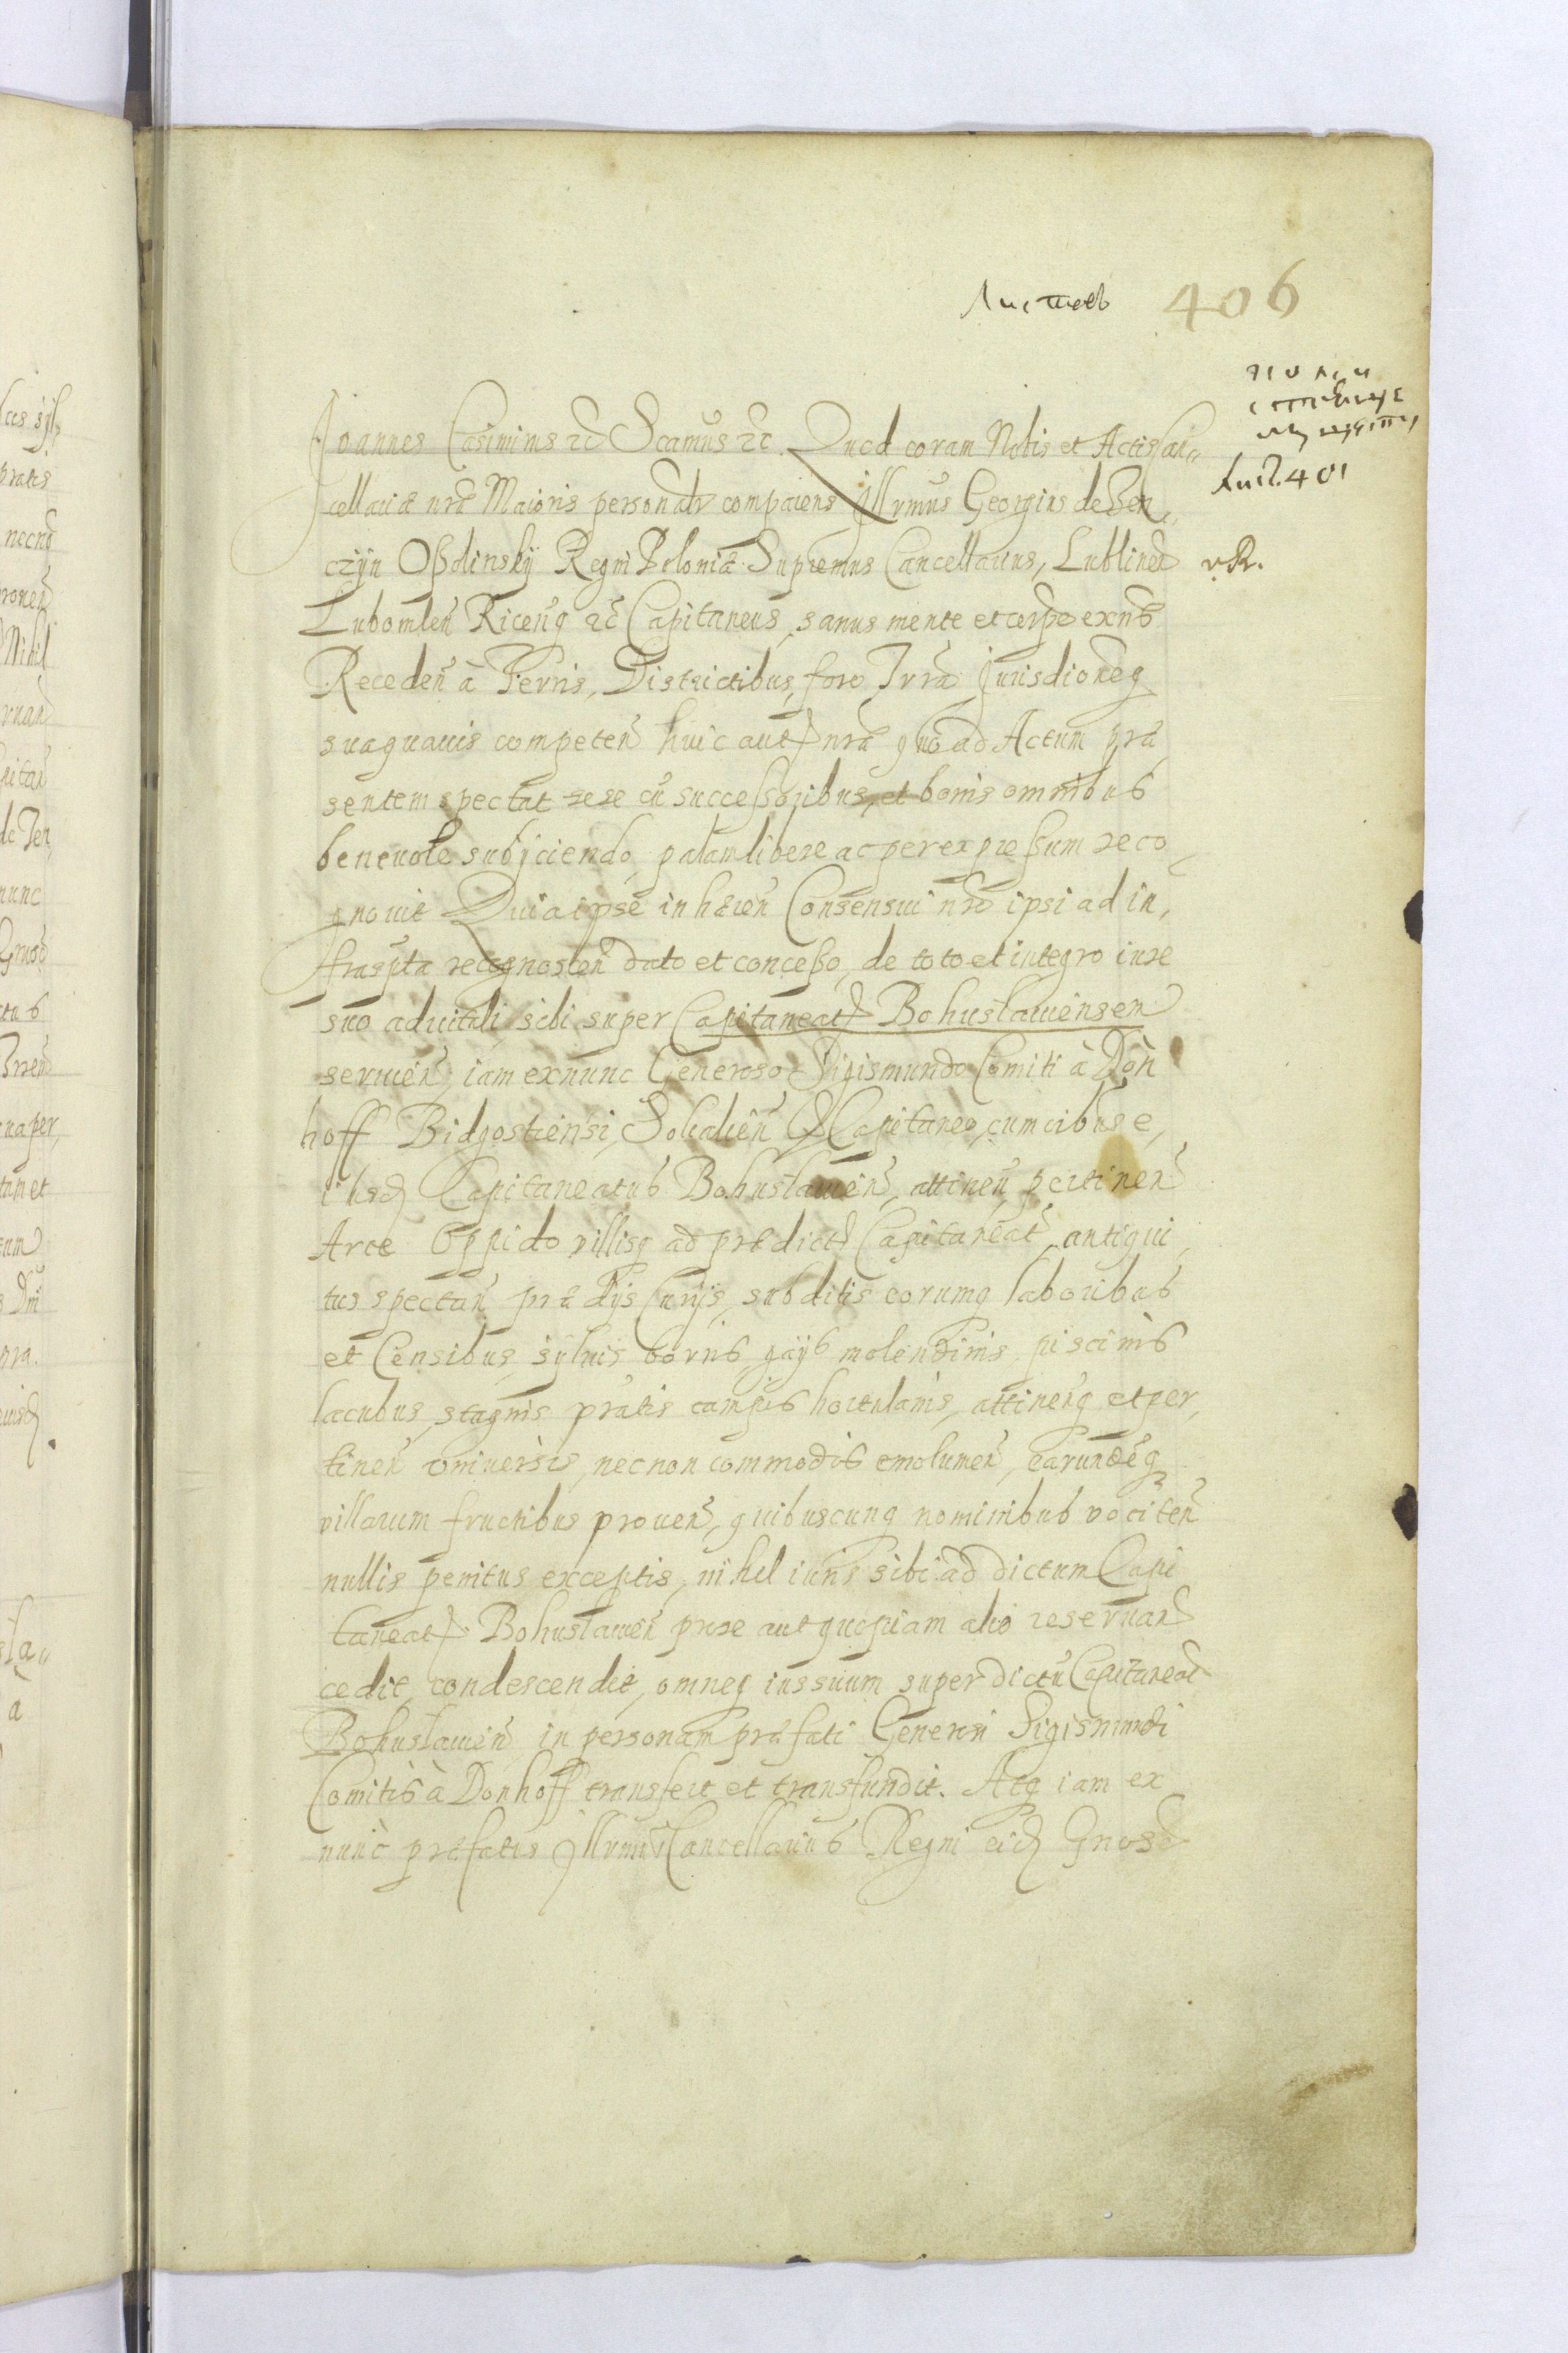 Листовъ 406
Лист. 401
v. R.
Joannes Casimirus &c Scamus &c. Quod coram Nobis et Actis Can„
cellariæ nræ Maioris personalr comparens Jllrmus Georgius de Ten„
czyn Oßolinsky Regni Poloniæ Supremus Cancellarius, Lublinen
Lubomlen Ricenq &c Capitaneus, sanus mente et corpe exñs
Receden à Terris, Districtibus, foro Jrra Jurisdioneq
suaquavis competen huic aut nrã quoad Actum præ
sentem spectat sese cũ successoribus, et bonis omnibus
benevole subjciendo, palam libere ac per expreßum reco„
gnovit Quia ipse inhæren Consensui nro ipsi ad in,
frascpta recognoscen dato et conceßo, de toto et integro iure
suo advitali sibi super Capitaneat Bohuslaviensem
servien, iam exnunc Generoso Sigismundo Comiti à Dön
hoff Bidgostiensi, Sokalien & Capitaneo, cum oibus e,
iusd Capitaneatus Bohuslavien, attinen, pertinen
Arce Oppido villisq ad prædict Capitaneat, antiqui,
tus spectan prædijs Curijs, subditis eorumq laboribus
et Censibus, sylvis borris, gays molendinis piscinis
lacubus, stagnis pratis campis hortulanis, attinenq et per,
tinen universis, necnon commodis emolumen, earundẽq
villarum fructibus proven, quibuscunq nominibus vociten
nullis penitus exceptis, nihil iuris sibi ad dictum Capi
taneat Bohuslavien prore aut quopiam alio reservan
cedit, condescendit, omneq ius suum super dictũ Capitaneat
Bohuslavien in personam præfati Generosi Sigismundi
Comitis à Donhoff transfert et transfundit. Atq iam ex
nunc præfatus Jllrmus Cancellarius Regni eid Gnoso